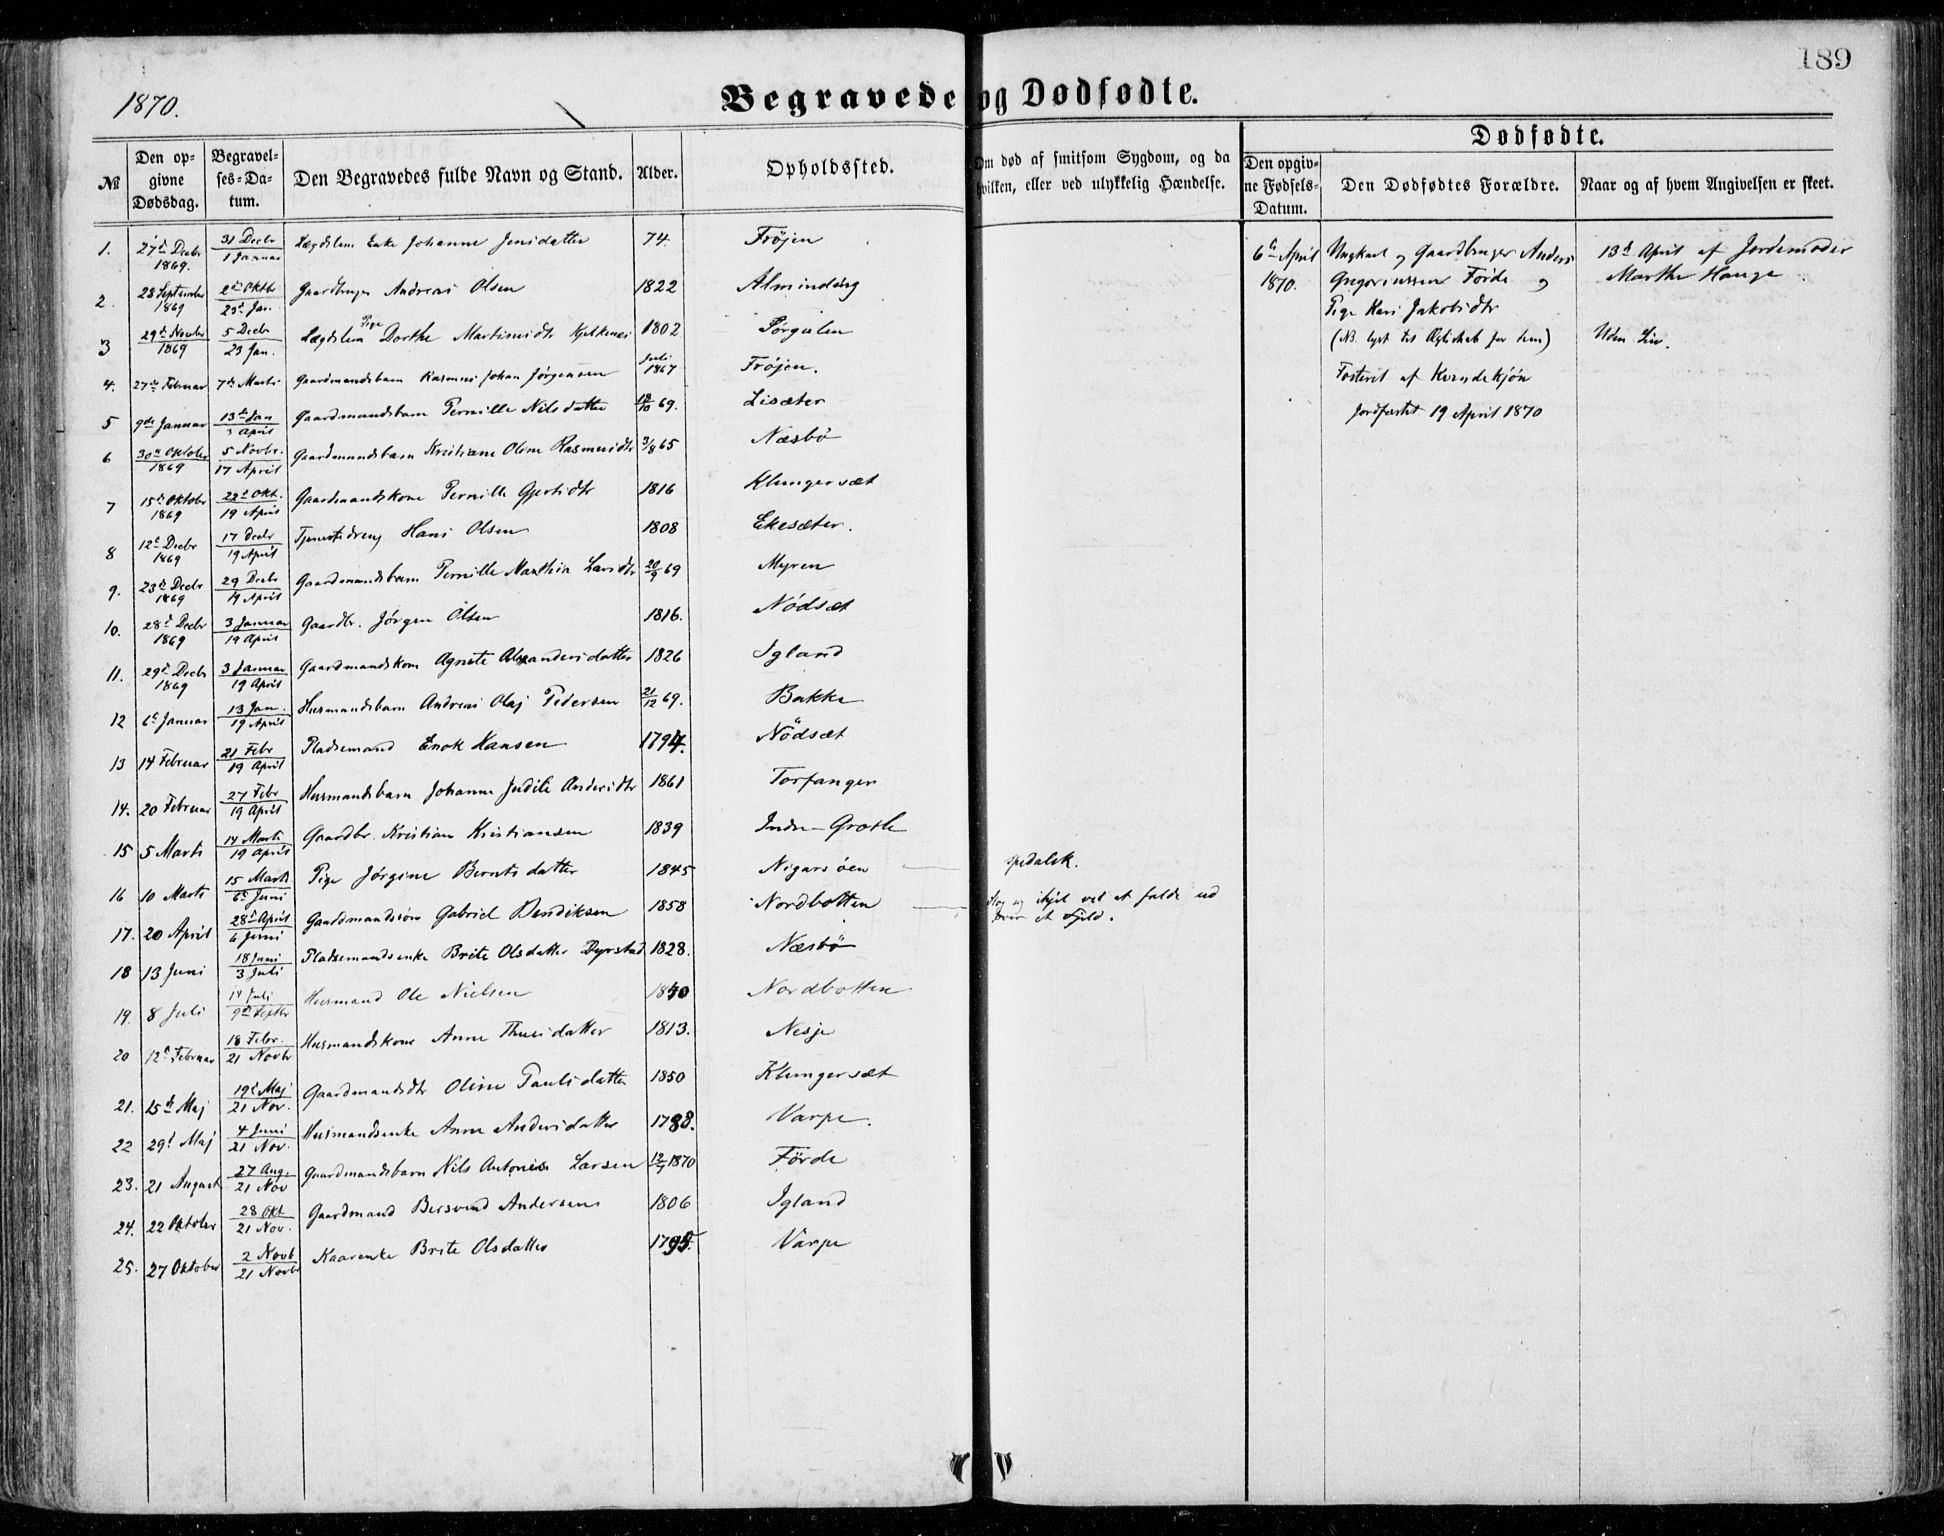 189
1870.
Begravede og Dødfødte.
Dødfødte.
№
Den op-
givne
Dødsdag.
Begravel-
ses-Da-
tum.
Den Begravedes fulde Navn og Stand.
Alder.
Opholdssted.
Om død af smitsom Sygdom, og da
hvilken, eller ved ulykkelig Hændelse.
Den opgiv-
ne Fødsels-
Datum.
Den Dødfødtes Forældre.
Naar og af hvem Angivelsen er skeet.
1. 27de Decbr 1869. 31 Decbr / 1 Januar Lægdslem Enke Johanne Jensdatter 74. Frøjen
2. 28 September 1869 2den Oktbr / 23de Jan. Gaardbruger Andreas Olsen 1822 Almindeby
3 29de Novbr 1869 5 Decbr / 23 Jan. Lægdslem Pige Dorthe Martinusdtr 1802
4. 27de Februar 7de Marts Gaardmandsbarn Rasmus Johan Jørgensen Juli 1867 Frøjen.
5 9de Januar 13de Jan / 3 April Gaardmandsbarn Pernille Nilsdatter 18/10 69. Lisæter
6 30te Oktober 1869 5 Novbr. / 17 April Gaardmandsbarn Kristiane Oline Rasmusdtr 3/8 65 Næsbø
7 15de Oktober 1869 22de Okt. / 19 April Gaardmandskone Pernille Gjertsdtr 1816 Klungersæt
8 12te Decbr 1869 17 Decbr / 19 April Tjenestedreng Hans Olsen 1808 Ekesæter.
9. 23de Decbr 1869 29 Decbr / 19 April Gaardmandsbarn Pernille Marthea Larsdtr 20/9 69 Myren
10. 28de Decbr 1869 3 Januar / 19 April Gaardbr. Jørgen Olsen 1816. Nödsæt
11. 29de Decbr 1869 3 Januar / 19 April Gaardmandskone Agnete Alexandersdatter 1826 Igland
12 6te Januar 13 Jan. / 19 April Husmandsbarn Andreas Olaj Pedersen 21/12 69. Bakke
13 14 Februar 21 Febr / 19 April Pladsemand Enok Hansen 1794. Nödsæt
14. 20 Februar 27 Febr / 19 April Husmandsbarn Johanne Judite Andersdtr 1861 Torfanger
15 5 Marts 14 Marts / 19 April Gaardbr. Kristian Kristiansen 1839 Indre-Grotle
16 10 Marts 15 Marts / 6te Juni Pige Jørgine Berntsdatter 1845 Nigarsøen spedalsk.
17. 20 April 28de April / 6 Juni Gaardmandssøn Gabriel Bendiksen 1858 Nordbotten slog sig ihjel ved at falde ud
over et Fjeld.
18 13 Juni 18 Juni / 3 Juli Pladsemandsenke Brite Olsdatter Dyrstad 1828. Næsbø
19. 8 Juli 14 Juli / 9de Septbr Husmand Ole Nielsen 1840 Nordbotten
20 12te Februar 18 Febr. / 21 Novbr Husmandskone Anne Thuesdatter 1813. Nesje
21. 15de Maj 19de Maj / 21 Nov. Gaardmandsdtr Oline Paulsdatter 1850 Klungersæt
22 29de Maj 4 Juni / 21 Nov. Husmandsenke Anne Andersdatter 1788. Varpe.
23. 21 August 27 Aug. / 21 Nov Gaardmandsbarn Nils Antonius Larsen 12/7 1870 Förde
24. 22 Oktober 28 Okt / 21 Nov. Gaardmand Bersvend Andersen 1806 Igland
25. 27 Oktober 2 Novb / 21 Novbr Kaarenke Brite Olsdatter 1795. Varpe
6te April
1870.
Ungkarl og Gaardbruger Anders
Gregoriussen Förde og
Pige Kari Jakobsdtr
(NB. lyst til Ægteskab for dem)
Fosteret af Kvindekjøn
Jordfæstet 19 April 1870
13de April af Jordemoder
Marthe Hauge.
Uden Liv.